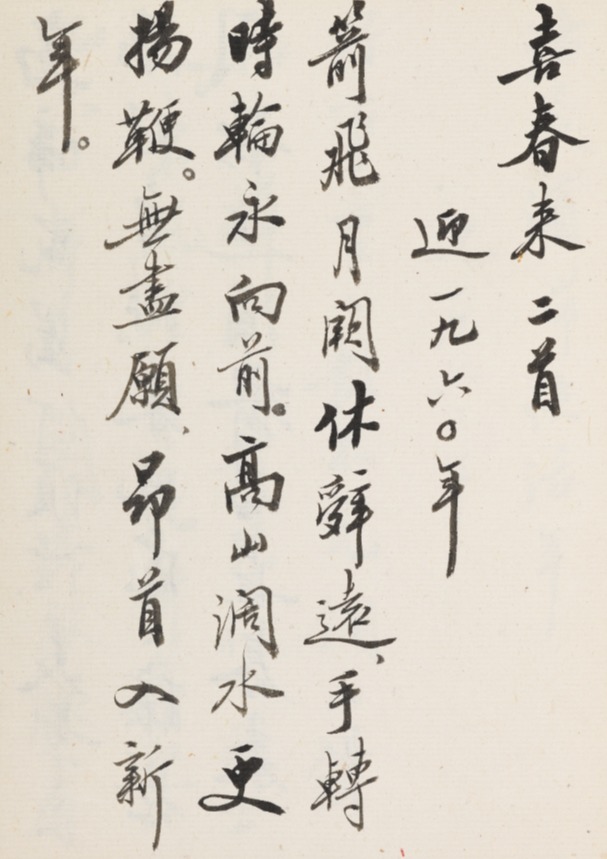 喜春来 二首
迎一九六〇年
箭飛月闕休辭遠、手轉
時輪永向前。高山濶水更
揚鞭。無盡願、昂首入新
年。